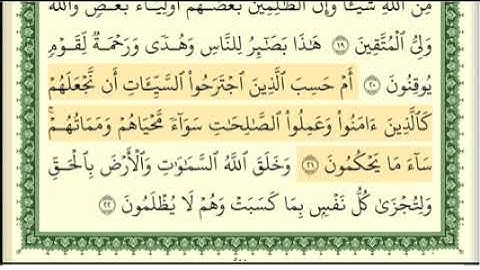 مِنَ ٱللَّهِ شَيْـًٔا وَإِنَّ ٱلظَّـٰلِمِينَ بَعْضُهُمْ أَوْلِيَآءُ بَعْضٍ وَٱللَّهُ
وَلِىُّ ٱلْمُتَّقِينَ ١٩ هَـٰذَا بَصَـٰٓئِرُ لِلنَّاسِ وَهُدًى وَرَحْمَةٌ لِّقَوْمٍ
يُوقِنُونَ ٢٠ أَمْ حَسِبَ ٱلَّذِينَ ٱجْتَرَحُوا۟ ٱلسَّيِّـَٔاتِ أَن نَّجْعَلَهُمْ
كَٱلَّذِينَ ءَامَنُوا۟ وَعَمِلُوا۟ ٱلصَّـٰلِحَـٰتِ سَوَآءً مَّحْيَاهُمْ وَمَمَاتُهُمْ ۚ
سَآءَ مَا يَحْكُمُونَ ٢١ وَخَلَقَ ٱللَّهُ ٱلسَّمَـٰوَٰتِ وَٱلْأَرْضَ بِٱلْحَقِّ
وَلِتُجْزَىٰ كُلُّ نَفْسٍۭ بِمَا كَسَبَتْ وَهُمْ لَا يُظْلَمُونَ ٢٢